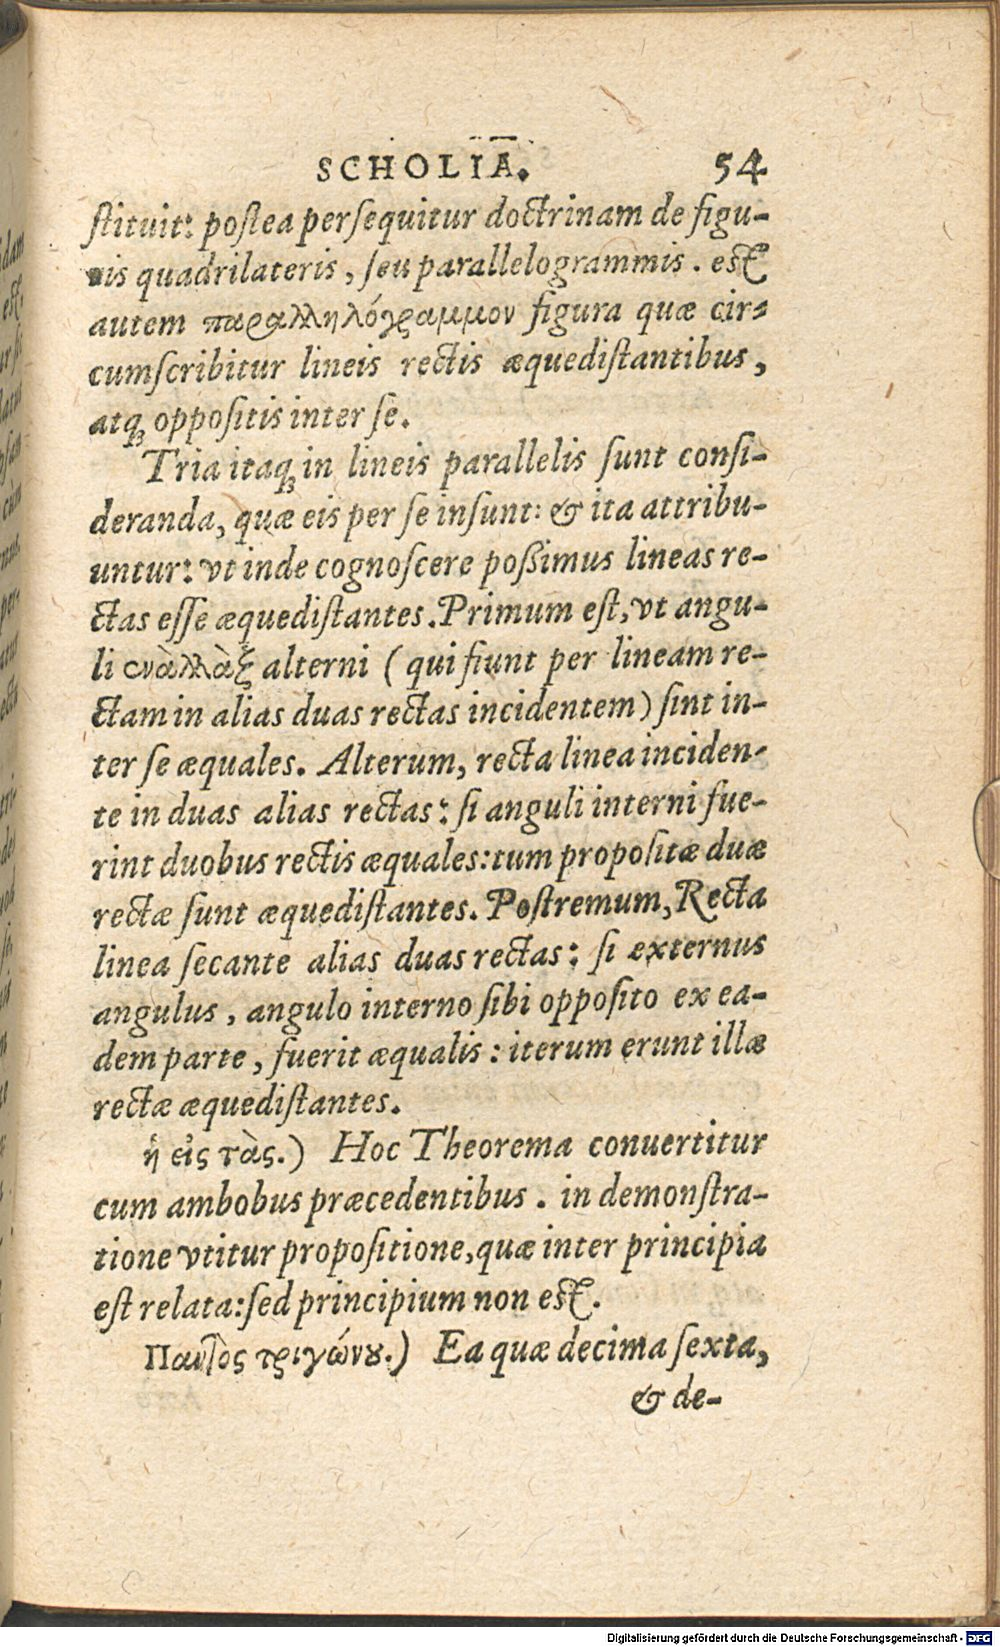 SCHOLIA. 54
ſtituit: poſtea perſequitur doctrinam de figu-
ris quadrilateris, ſeu parallelogrammis. eſt
autem παραλληλόγραμμον figura quæ cir-
cumſcribitur lineis rectis æquediſtantibus,
atq; oppoſitis inter ſe.
Tria itaq; in lineis parallelis ſunt conſi-
deranda, quæ eis per ſe inſunt: & ita attribu-
untur: vt inde cognoſcere poßimus lineas re-
ctas eſſe æquediſtantes. Primum eſt, vt angu-
li ἐναλλὰξ alterni (qui fiunt per lineam re-
ctam in alias duas rectas incidentem) ſint in-
ter ſe æquales. Alterum, recta linea inciden-
te in duas alias rectas: ſi anguli interni fue-
rint duobus rectis æquales: tum propoſitæ duæ
rectæ ſunt æquediſtantes. Poſtremum, Recta
linea ſecante alias duas rectas: ſi externus
angulus, angulo interno ſibi oppoſito ex ea-
dem parte, fuerit æqualis: iterum erunt illæ
rectæ æquediſtantes.
ἡ εἰς τὰς.) Hoc Theorema conuertitur
cum ambobus præcedentibus. in demonſtra-
tione vtitur propoſitione, quæ inter principia
eſt relata: ſed principium non eſt.
Παντὸς τριγώνου.) Ea quæ decima ſexta,
& de-
Digitalisierung gefördert durch die Deutsche Forschungsgemeinschaft - DFG